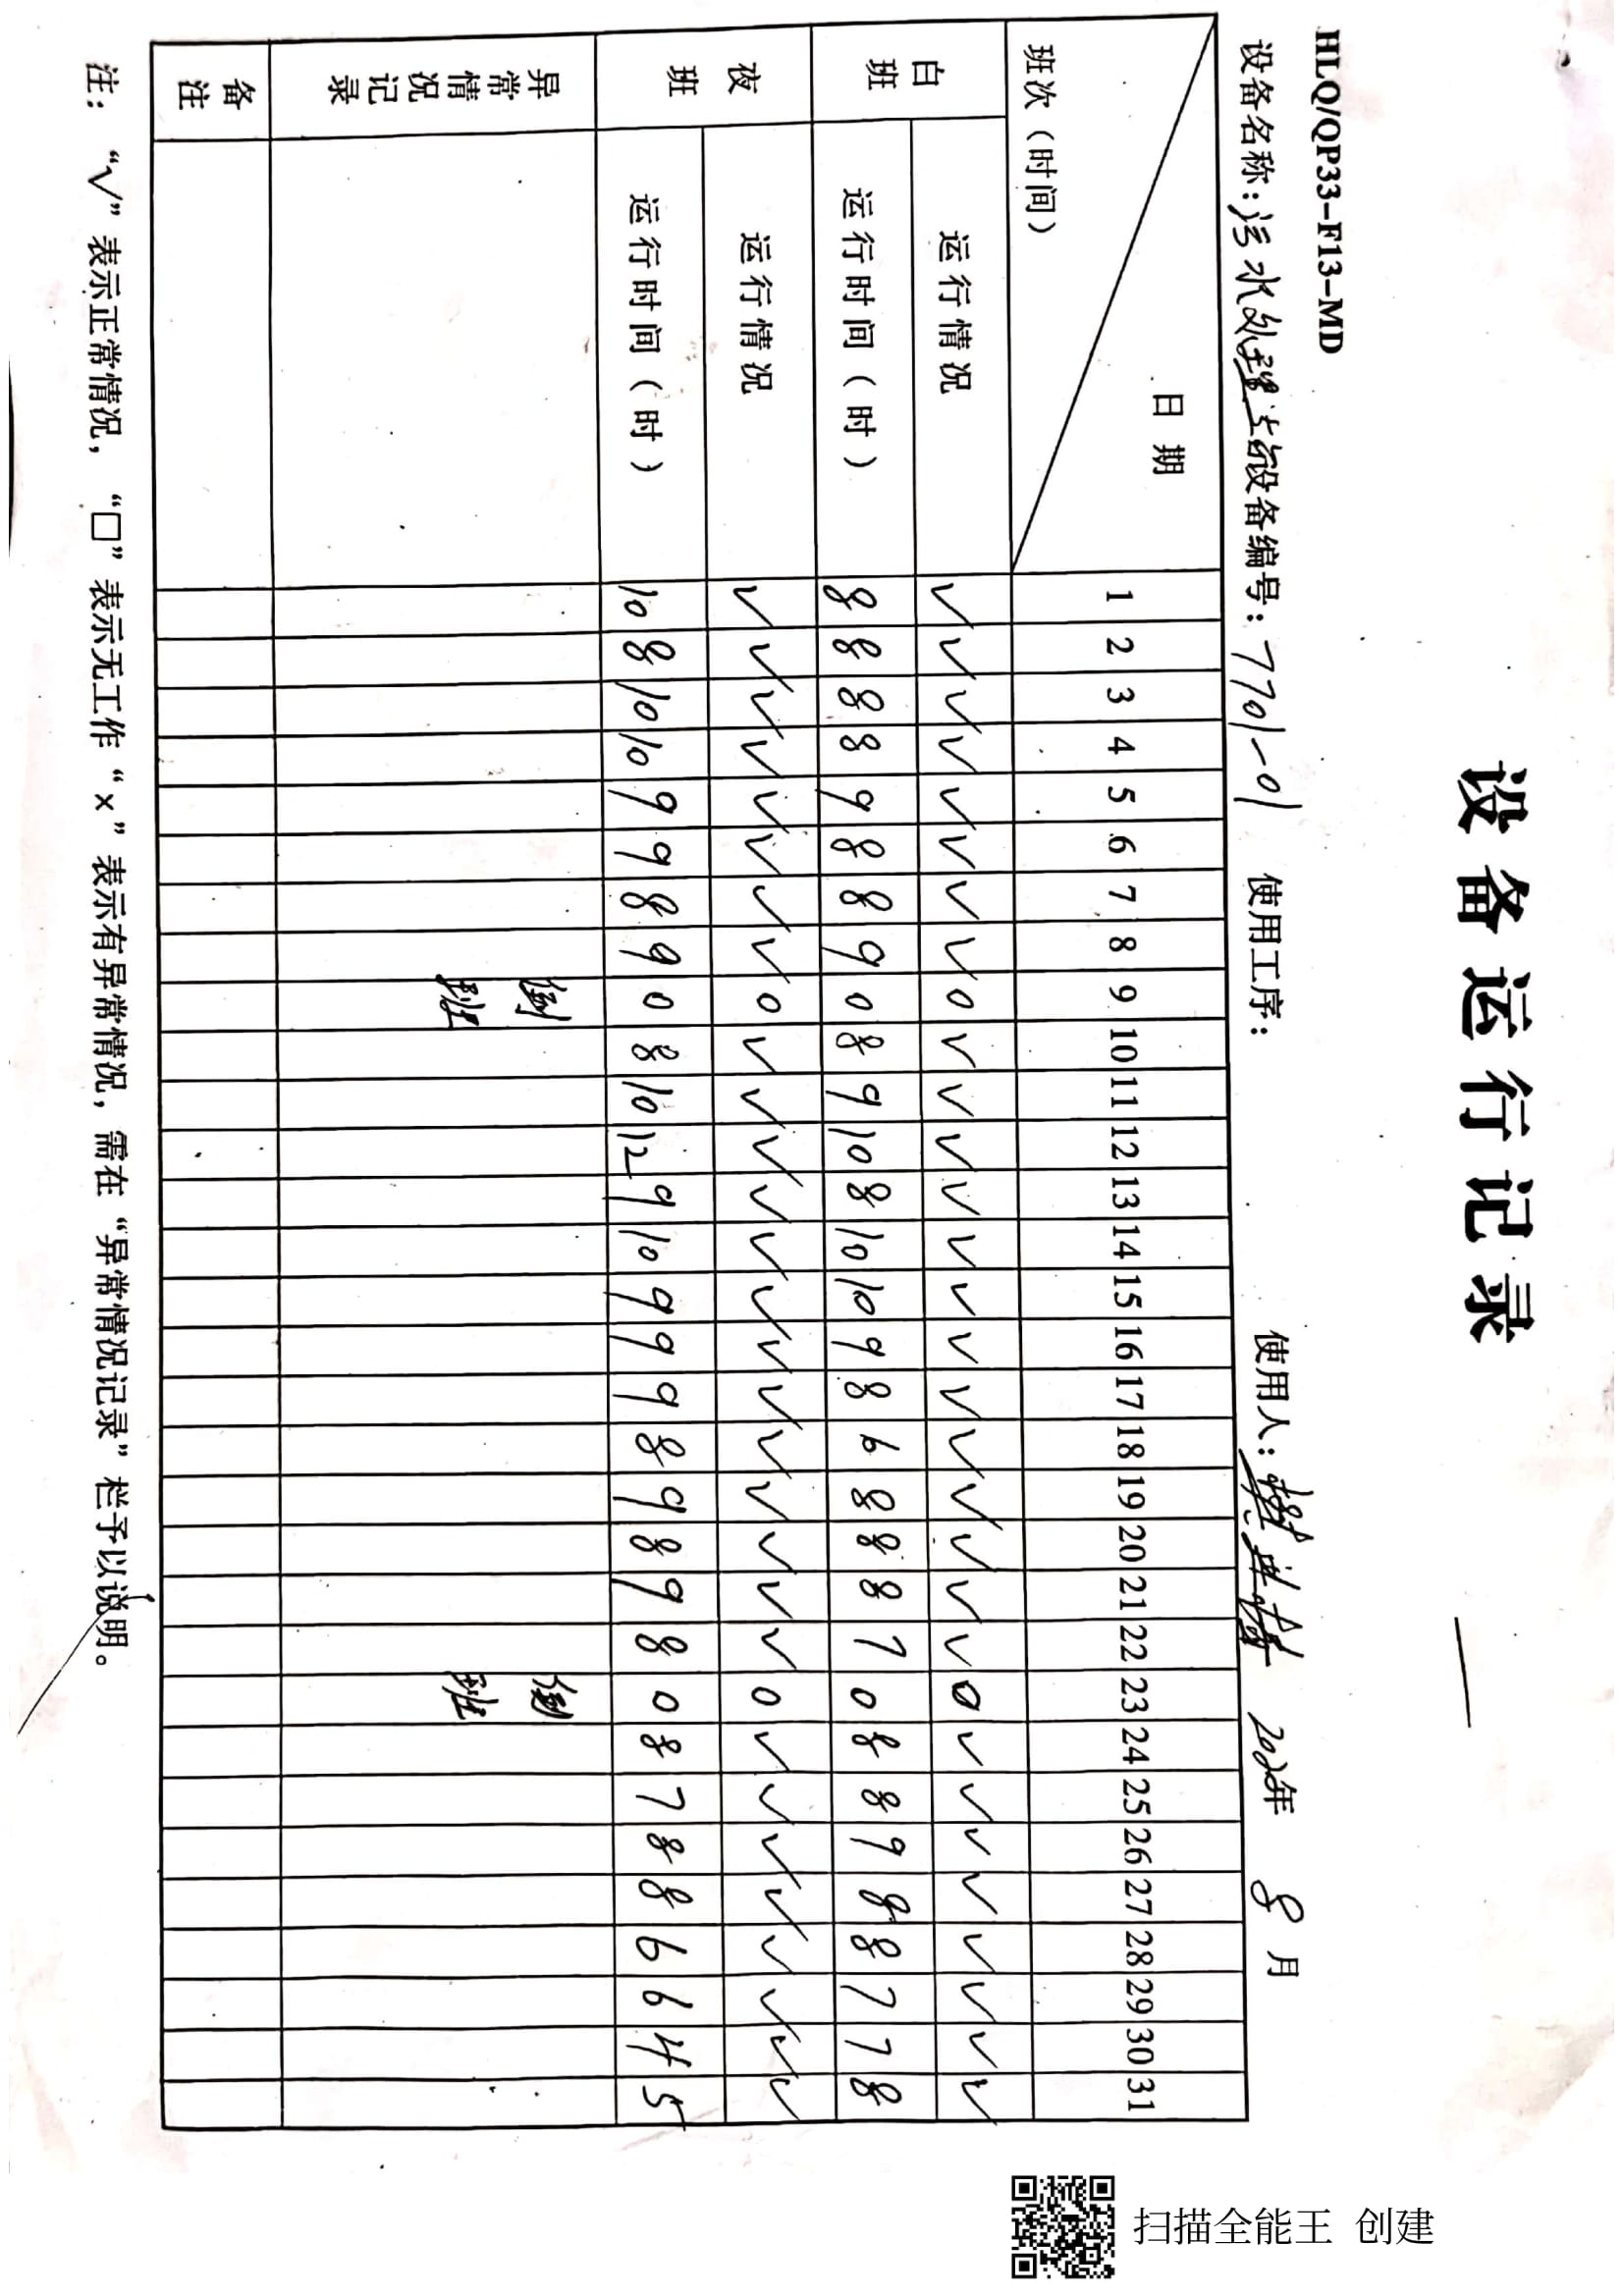 设备运行记录
HLQ/QP33-F13-MD
设备名称：污水处理 设备编号：7701-01 使用工序： 使用人： 年 8月
日期 1 2 3 4 5 6 7 8 9 10 11 12 13 14 15 16 17 18 19 20 21 22 23 24 25 26 27 28 29 30 31
班次（时间）
白班 运行情况 √ √ √ √ √ √ √ √ 0 √ √ √ √ √ √ √ √ √ √ √ √ √ 0 √ √ √ √ √ √ √ √
运行时间（时） 8 8 8 8 9 8 8 9 0 8 9 10 8 10 10 9 8 6 8 8 8 7 0 8 8 9 8 8 7 7 8
夜班 运行情况 √ √ √ √ √ √ √ √ 0 √ √ √ √ √ √ √ √ √ √ √ √ √ 0 √ √ √ √ √ √ √ √
运行时间（时） 10 8 10 10 9 9 8 9 0 8 10 12 9 10 9 9 9 8 9 8 9 8 0 8 7 8 8 6 6 4 5
异常情况记录 倒班 倒班
备注
注：“√”表示正常情况，“□”表示无工作“×”表示有异常情况，需在“异常情况记录”栏予以说明。
扫描全能王 创建